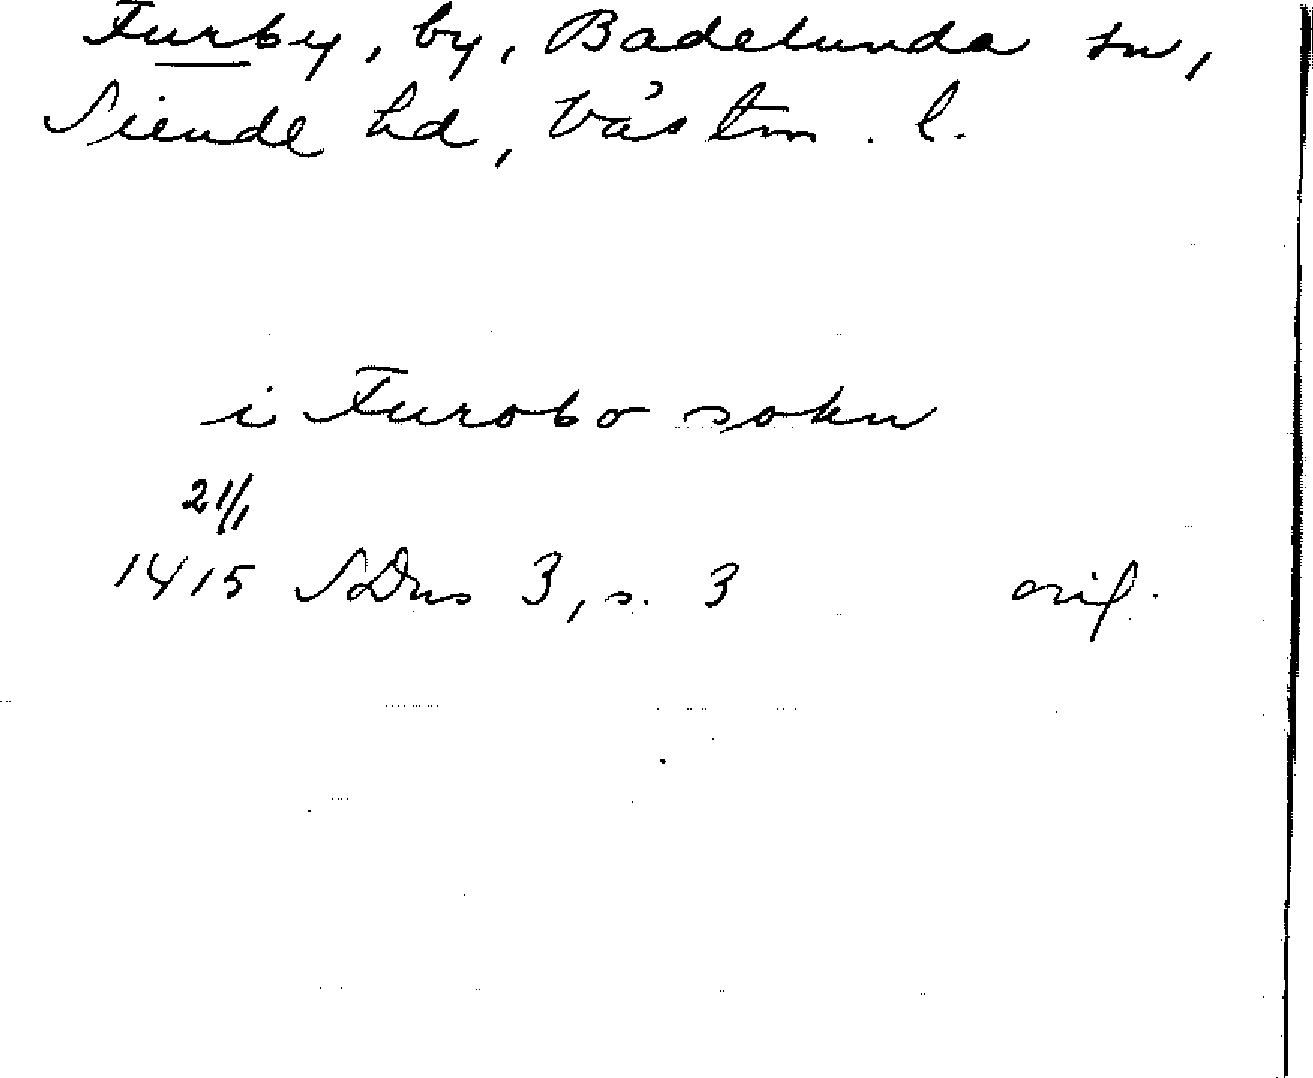 Furby, by, Badelunda sn,
Siende hd, Västm. l.
i Furobo sokn
21/1
1415 SDns 3, s. 3 orig.